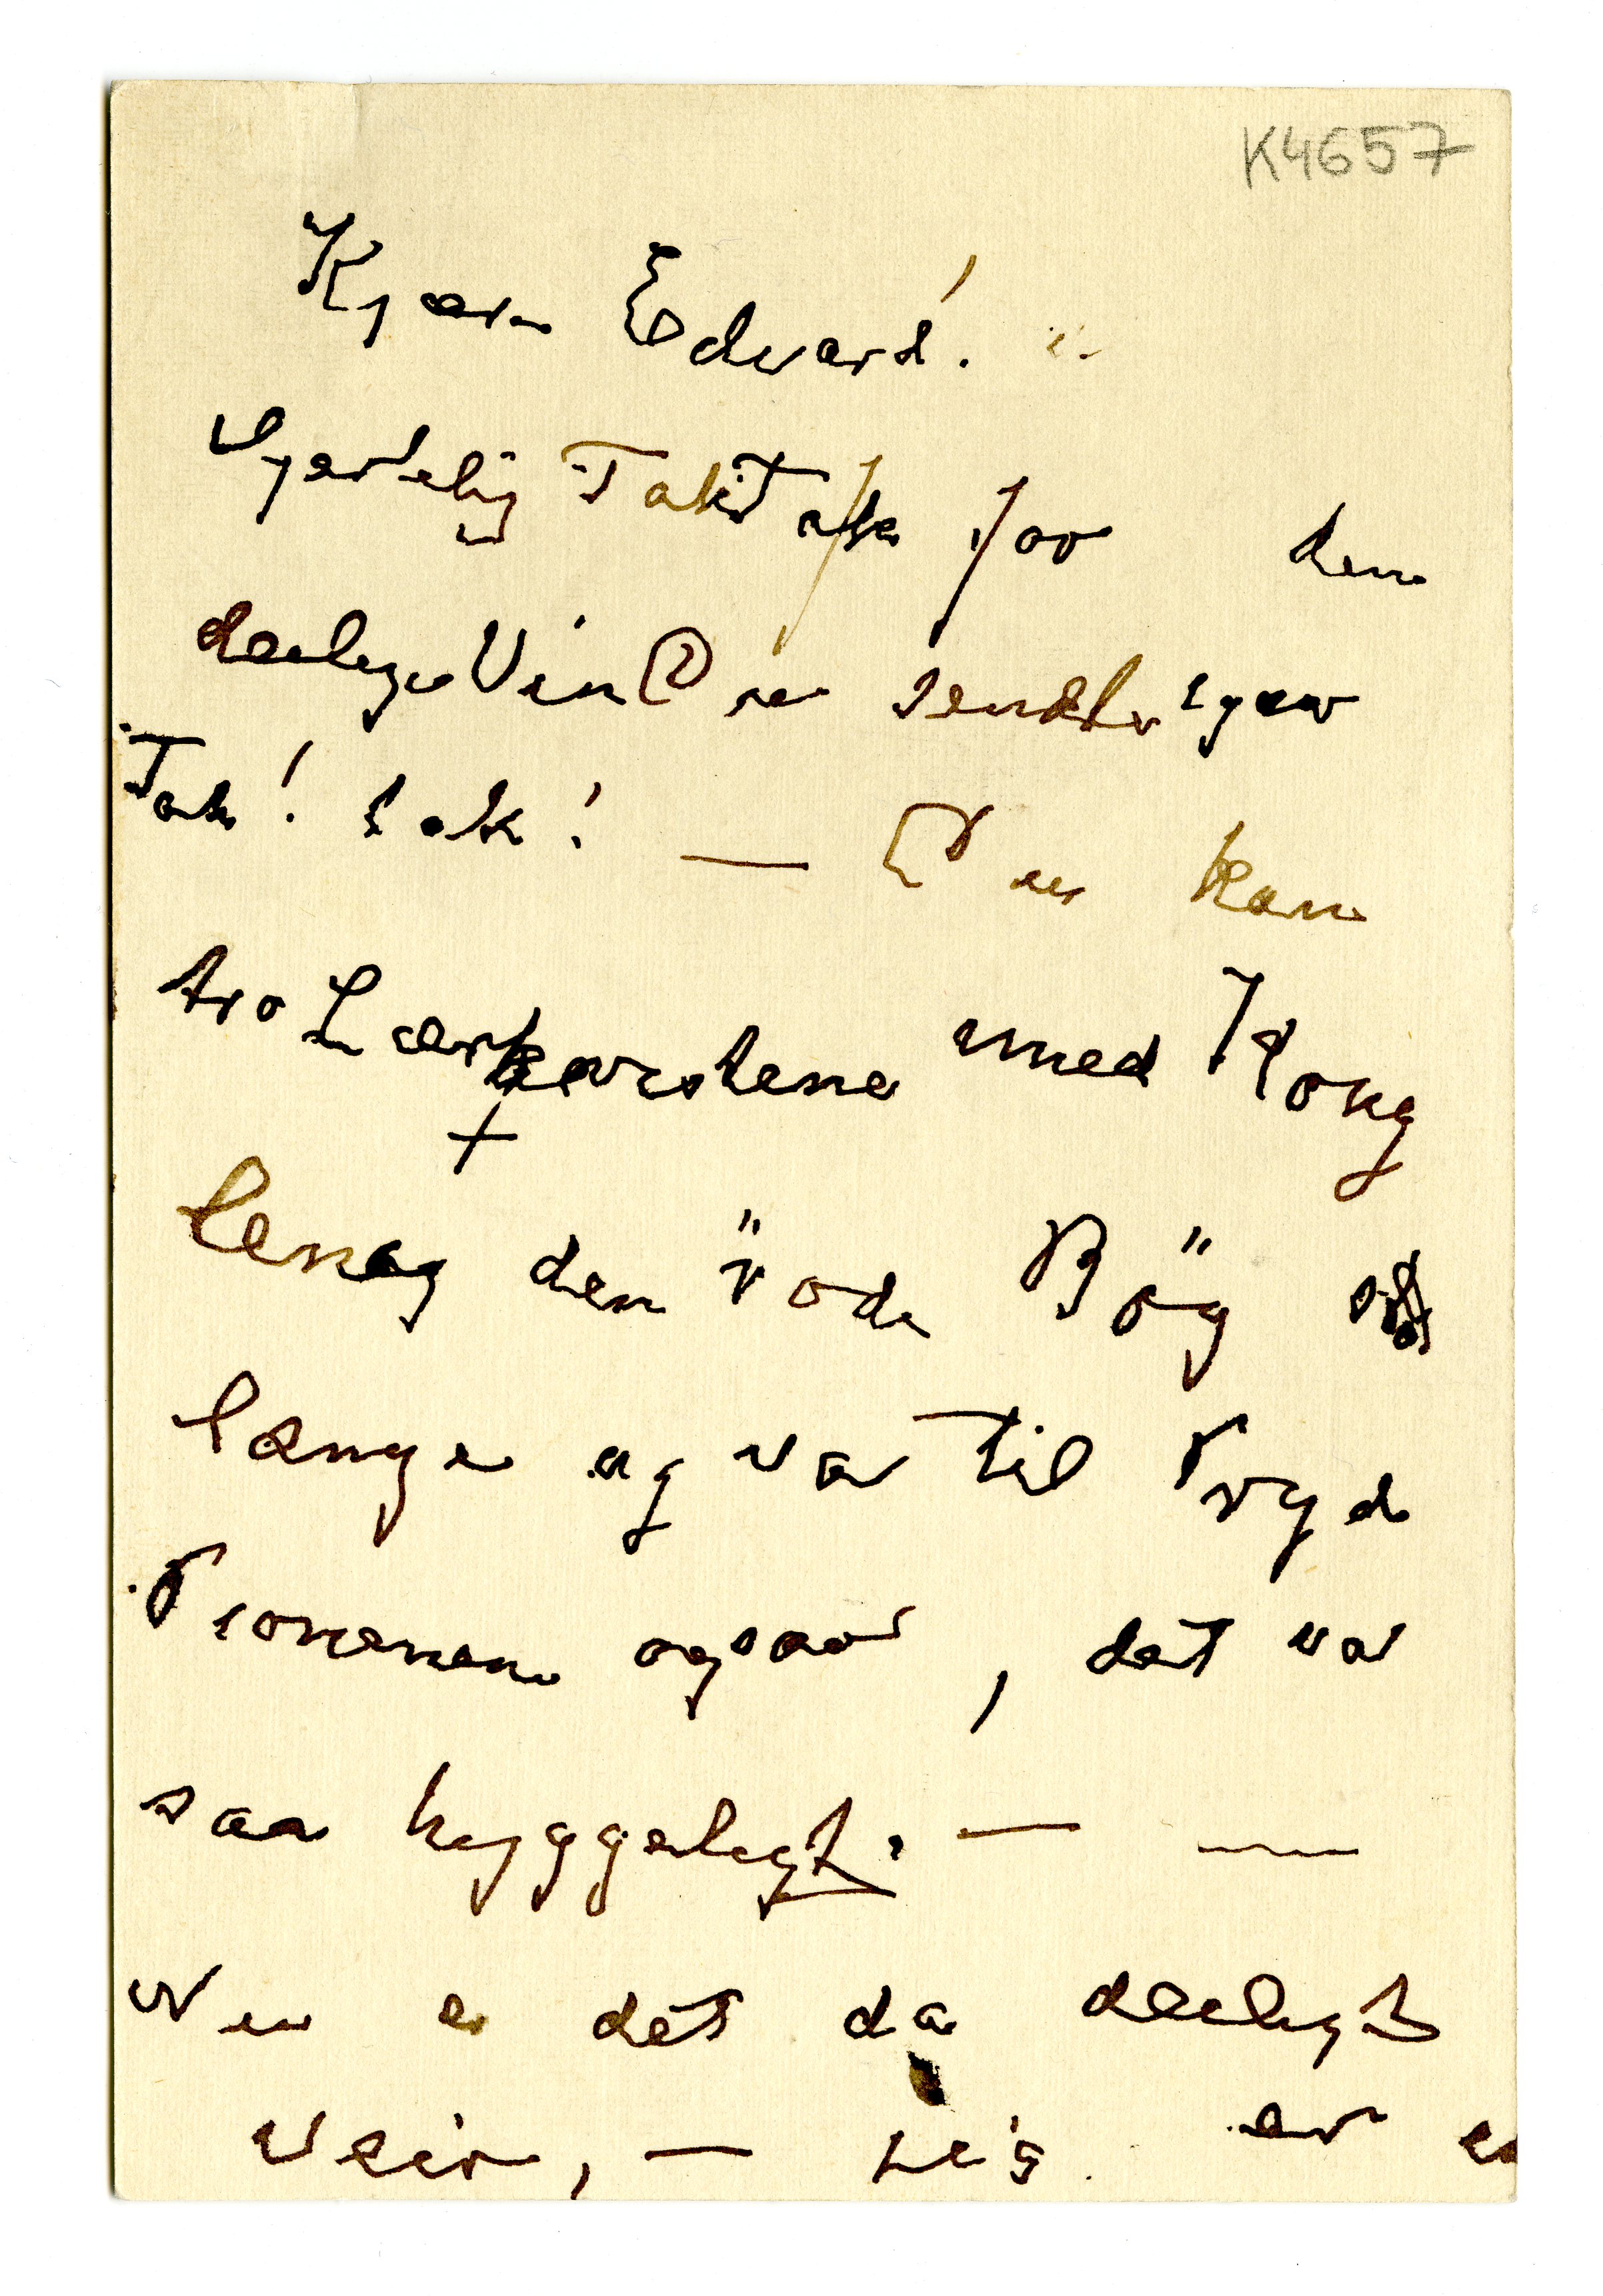 K4657
Kjære Edvard!
Hjertelig Tak Tak for den
deilige Vin Du sendte igaar
Tak! tak! — Du kan
tro Lærkegrenene med Kong
og den røde Bøg
længe og var til Pryd
Pionenene ogsaa, det var
saa hyggeligt. — —
Nu er det da deiligt
Veir, — jeg er